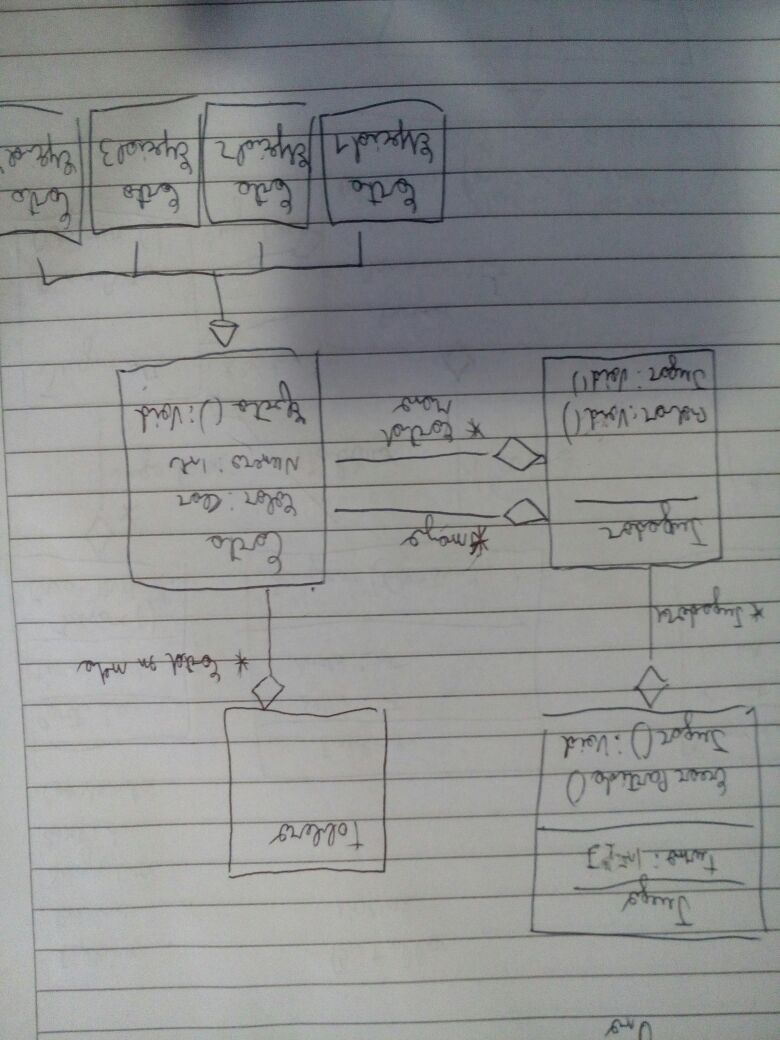 Uno
Juego
turno: Int[]
Crear Partida()
Jugar(): Void
Tablero
* Cartas en mesa
* Jugadores
Jugador
Robar: Void()
Jugar: Void()
*mazo
* Cartas
Mano
Carta
Color: Color
Numero: Int
Efecto(): Void
Carta
Especial1
Carta
Especial2
Carta
Especial3
Carta